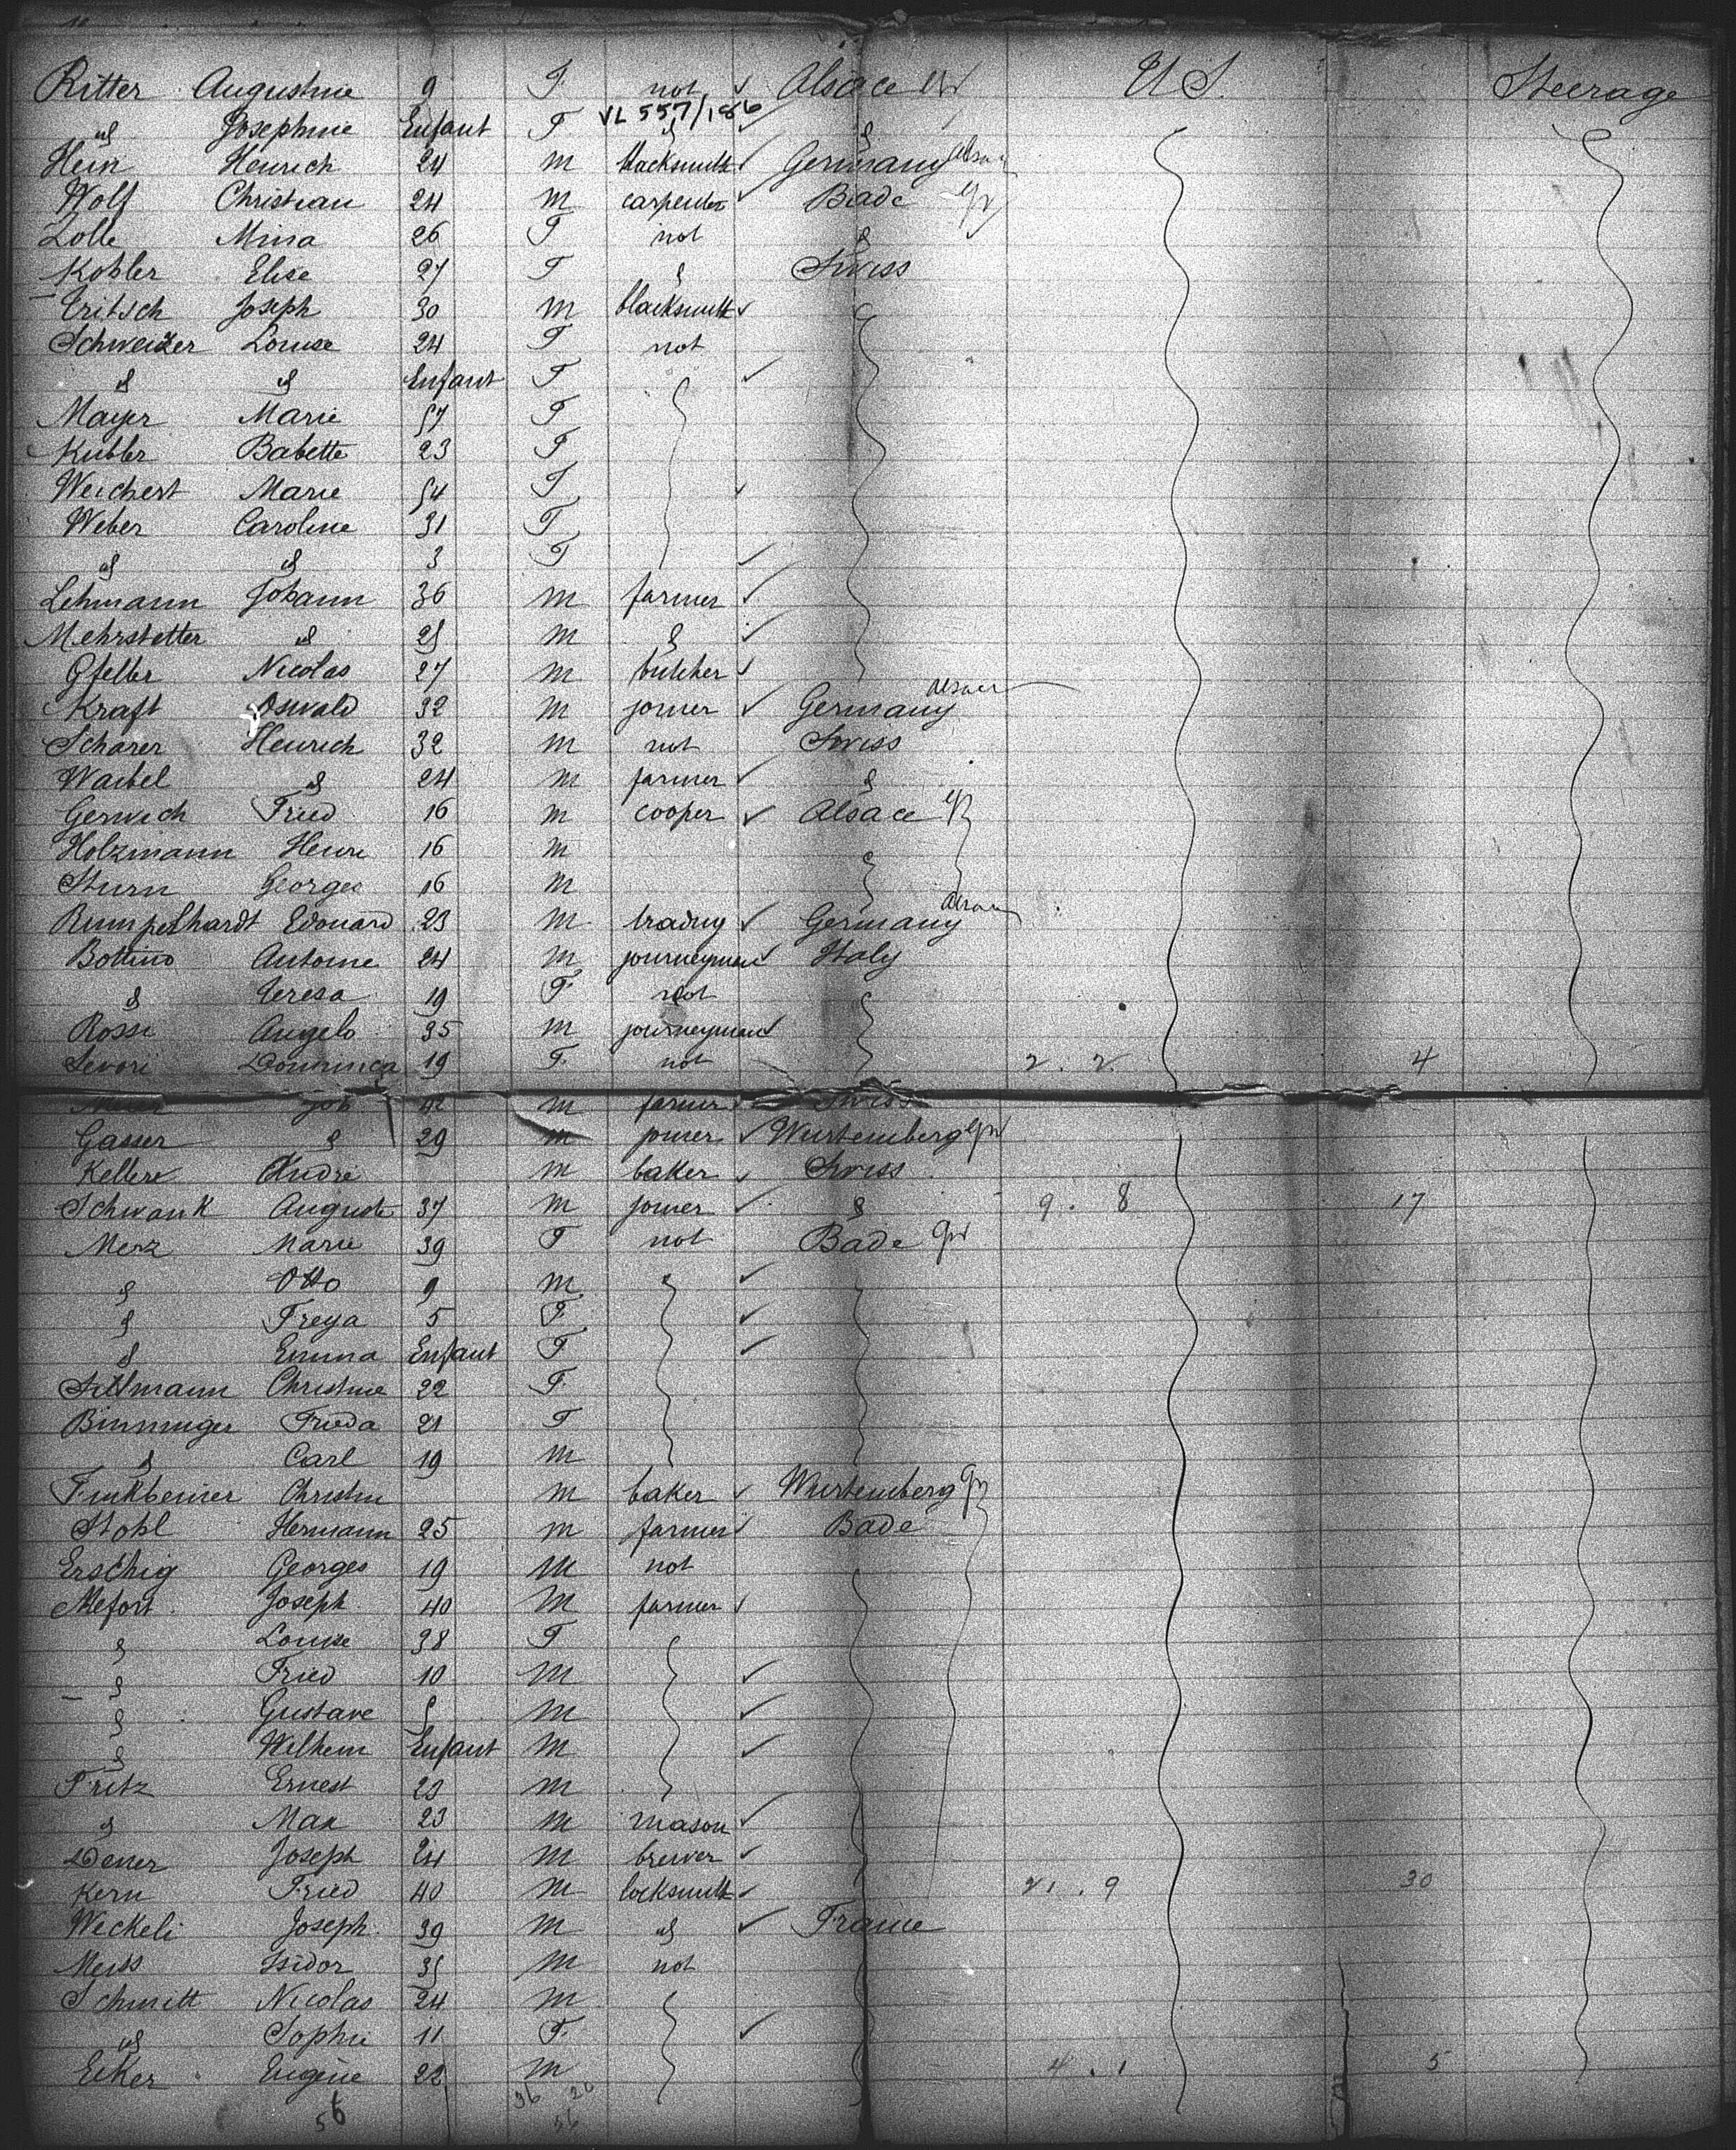 Ritter Augustine 9 F. not Alsace U.S. Steerage
VL 557/186
" Josephine Enfant F " "
Hein Heinrich 24 m blacksmith Germany
Wolf Christian 24 m carpenter Bade
Lolle Mina 26 F not "
Kobler Elise 27 F " Swiss
Fritsch Joseph 30 m blacksmith
Schweizer Louise 24 F not
" " Enfant F
Mayer Marie 57 F
Kubler Babette 23 F
Weichert Marie 54 F
Weber Caroline 31 F
" " 3 F
Lehmann Johann 36 m farmer
Mehrstetter " 25 m "
Gfeller Nicolas 27 m butcher
Kraft Oswald 32 m joiner Germany
Scharer Heinrich 32 m not Swiss
Waibel " 24 m farmer "
Gerwich Fried 16 m cooper Alsace
Holzmann Henri 16 m
Sturn Georges 16 m
Rumpelhardt Edouard 23 m trading Germany
Bottino Antoine 24 m journeyman Italy
" Teresa 19 F. not
Rossi Angelo 35 m journeyman
Sevori Dominica 19 F. not 2. 2. 4
Job 42 m farmer Swiss
Gasser " 29 m joiner Wurtemberg
Kellere André m baker Swiss
Schwank Auguste 37 m joiner " 9. 8 17
Merz Marie 39 F not Bade
" Otto 9 m
" Freya 5 F.
" Emma Enfant F
Sittmann Christine 22 F.
Binninger Frieda 21 F
" Carl 19 m
Finkbeiner Christin m baker Wurtemberg
Stohl Hermann 25 m farmer Bade
Erschig Georges 19 m not
Mefort Joseph 40 m farmer
" Louise 38 F
" Fried 10 m
" Gustave 5 m
" Wilhem Enfant m
Fritz Ernest 25 m
" Max 23 m mason
Dener Joseph 24 m brewer
Kern Fried 40 m locksmith 21. 9 30
Weckeli Joseph. 39 m " France
Meiss Isidor 35 m not
Schmitt Nicolas 24 m
" Sophie 11 F.
Ecker Eugène 22 m 4. 1 5
56 36 20
56